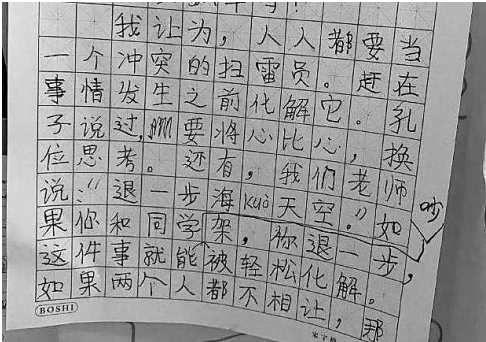 我让为，人人都要当
一个冲突的扫雷员。赶在
事情发生之前化解它。孔
子说过，要将心比心，换
位思考。还有，我们老师
说：“退一步海kuò天空。”如
果你和同学吵架，你退一步，
这件事就能被轻松化解。
如果两个人都不相让，那
BOSHI
米字格